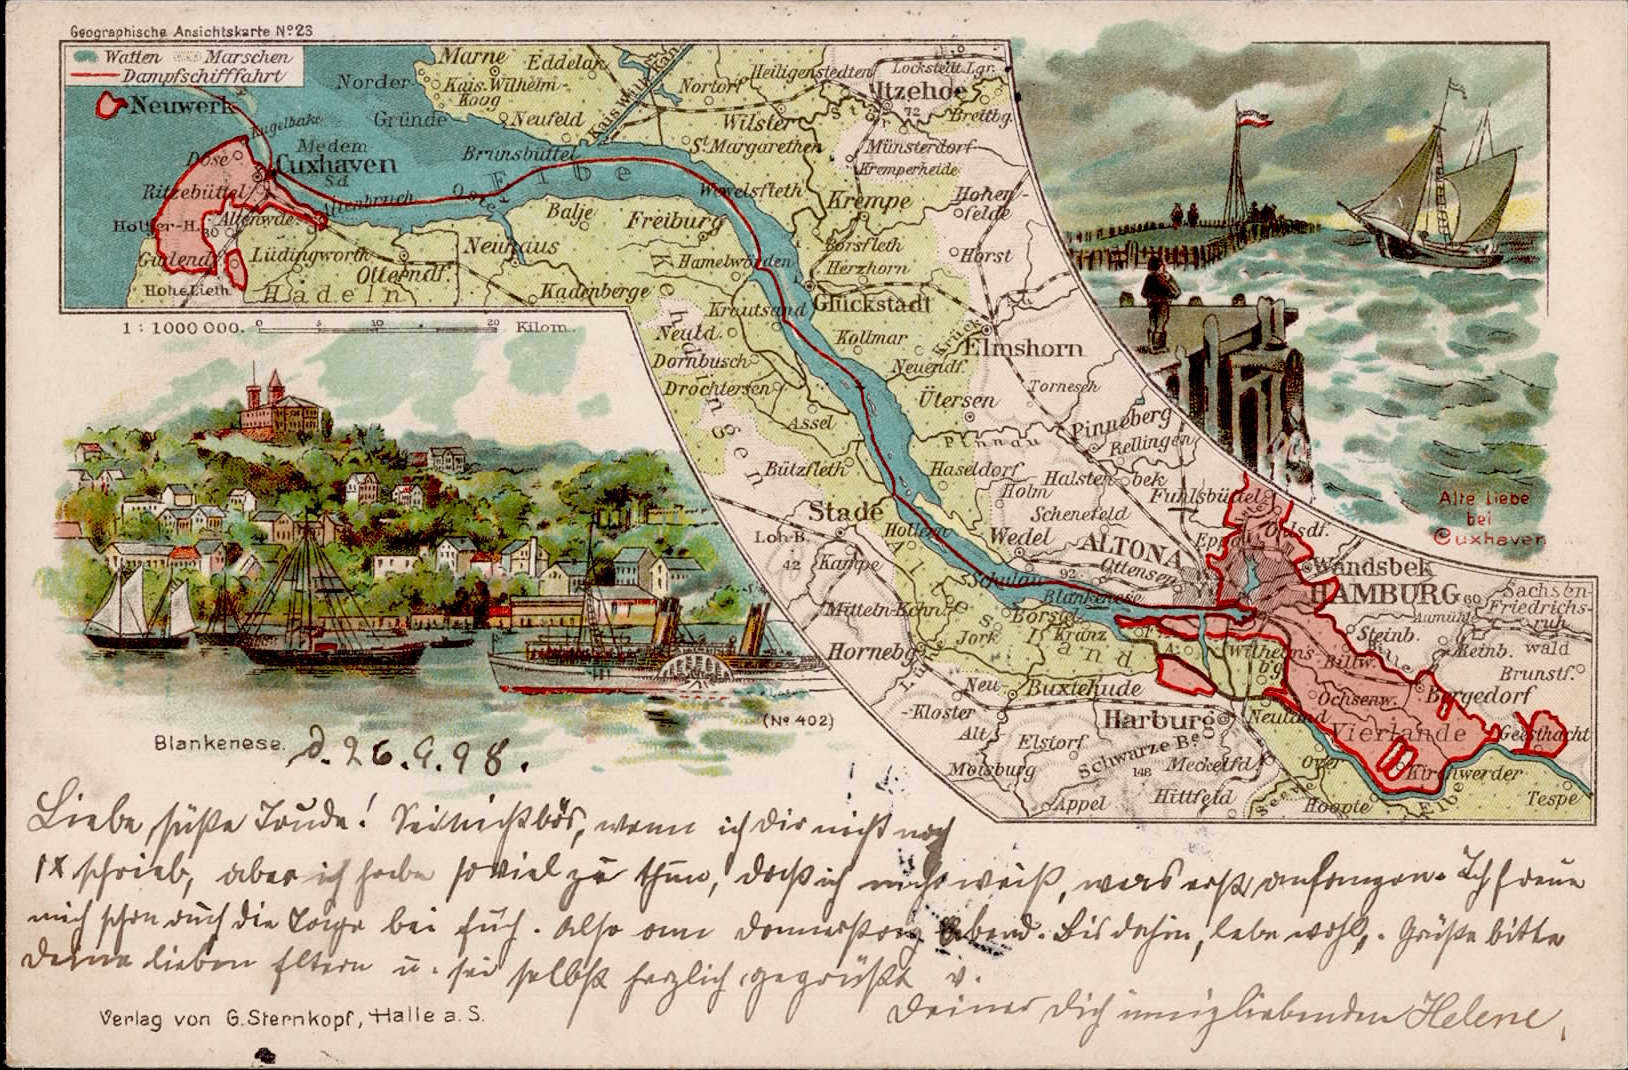 Geographische Ansichtskarte Nº 23
Watten Marschen
Dampfschifffahrt
Marne
Eddelak
Norder
Kais. Wilhelm-
Koog
Gründe
Neufeld
Kais. Wilh. Kan.
Nortorf
Heiligenstedten
Lockstedt. Lgr.
Itzehoe
72
Breitbg.
Stör
Wilster
St. Margarethen
Münsterdorf
Kremperheide
Neuwerk
Kugelbake
Döse
Medem
Sd.
Cuxhaven
Ritzebüttel
Altenbruch
Oste
Brunsbüttel
Elbe
Wewelsfleth
Krempe
Hohen-
felde
Altenwde.
30
Gudend.
Lüdingworth
Otterndf.
Neuhaus
Balje
Freiburg
Hamelwörden
Borsfleth
Herzhorn
Horst
Hohe Lieth
Hadeln
Kadenberge
Krautsand
Glückstadt
1 : 1000 000. 0 5 10 20 Kilom.
Kehdingen
Neuld.
Kollmar
Krück
Elmshorn
Dornbusch
Neuendf.
Drochtersen
Ütersen
Tornesch
Assel
Pinnau
Pinneberg
Rellingen
Bützfleth
Haseldorf
Holm
Halstenbek
Fuhlsbüttel
Schenefeld
Stade
Hollern
Wedel
ALTONA
Ottensen
Ohlsdf.
Alte Liebe
bei
Cuxhaven
Loh-B.
42
Kampe
Schulau
92
Blankenese
Wandsbek
HAMBURG
60
Sachsen-
Friedrichs-
ruh
Aumühle
Altes Land
Borstel
Kranz
Jork
Steinb.
Bille
Reinb.
wald
Horneburg
Lühe
Wilhelms-
b'g
Billw.
Brunstf.
Neu
-Kloster
Buxtehude
Ochsenw.
Bergedorf
Alt
Harburg
Neuland
Vierlande
Geesthacht
Elstorf
Schwarze Be
148
Meckelfd.
Over
Kirchwerder
Moisburg
Appel
Hittfeld
Seeve
Hoopte
Elbe
Tespe
(Nº 402)
Blankenese. d. 26.9.98.
Liebe süße Trude! Sei nicht bös, wenn ich dir nicht noch
1x schrieb, aber ich habe soviel zu thun, daß ich nicht weiß, was erst anfangen. Ich freue
mich schon auf die Tage bei Euch. Also am Donnerstag Abend. Bis dahin, lebe wohl. Grüße bitte
Deine lieben Eltern u. sei selbst herzlich gegrüßt v.
Deiner Dich innigliebenden Helene.
Verlag von G. Sternkopf, Halle a. S.